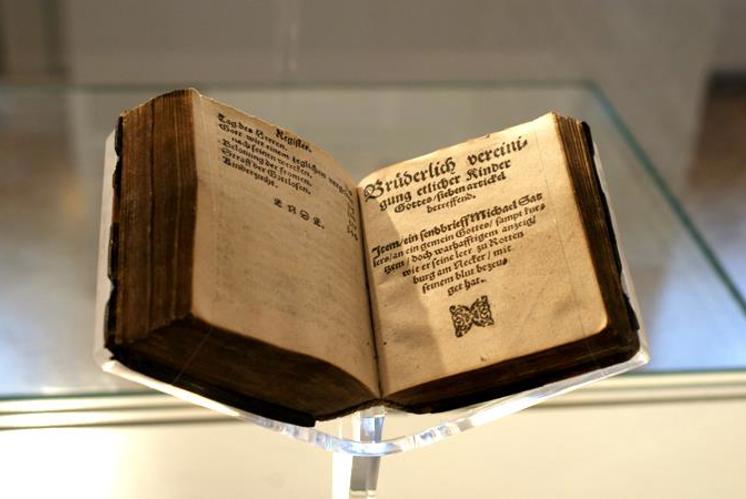 Register.
Tag des Herren.
Gott wirt einem jeglichen vergelten
nach seinen wercken.
Belonung der fromen.
Straff der Gottlosen.
Kinderzucht.
E N D E.
Brüderlich vereini-
gung etlicher Kinder
Gottes/ sieben artickel
betreffend.
Item/ ein sendbrieff Michael Sat
lers/ an ein gemein Gottes/ sampt kur-
tzem/ doch warhafftigem anzeig/
wie er seine leer zu Rotten
burg am Necker/ mit
seinem blut bezeu-
get hat.